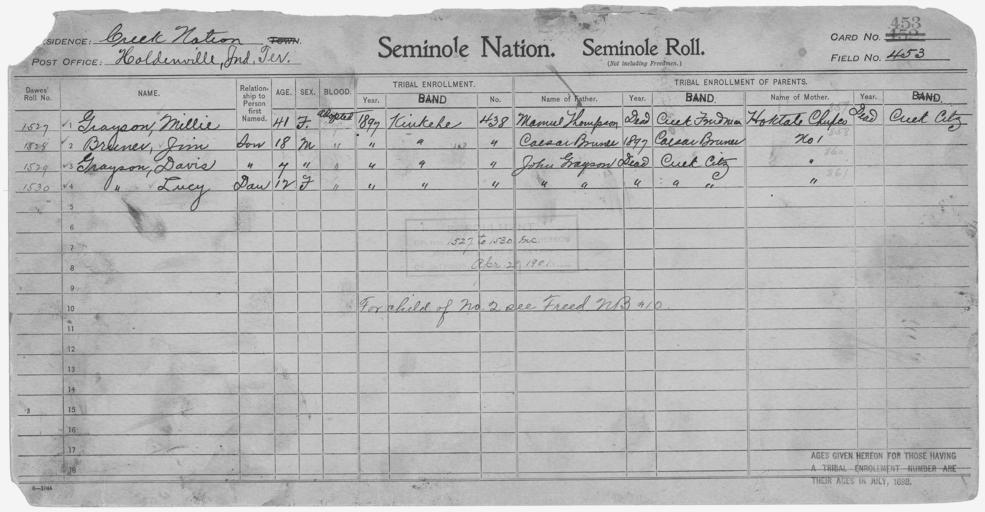 453
RESIDENCE: Creek Nation TOWN. Seminole Nation. Seminole Roll. CARD NO. 453
POST OFFICE: Holdenville, Ind. Ter. (Not including Freedmen.) FIELD NO. 453
Dawes' Roll No. NAME. Relationship to Person first Named. AGE. SEX. BLOOD. TRIBAL ENROLLMENT. TRIBAL ENROLLMENT OF PARENTS.
Year. BAND No. Name of Father. Year. BAND. Name of Mother. Year. BAND.
1527 1 Grayson, Millie 41 F. Adopted 1897 Kinkehe 438 Dead Creek Dead Creek Citz
1528 2 Bruner, Jim Son 18 M " " " " Caesar Bruner 1897 Caesar Bruner No 1
1529 3 Grayson, Davis " 7 " " " " " John Grayson Dead Creek Citz "
1530 4 " Lucy Dau 12 F " " " " " " " " "
5
6
7 1527 to 1530 inc
8 Apr 2 1901
9
10 For child of No 2 see Freed NB 410
11
12
13
14
15
16
17
18
AGES GIVEN HEREON FOR THOSE HAVING
A TRIBAL ENROLLMENT NUMBER ARE
THEIR AGES IN JULY, 1898.